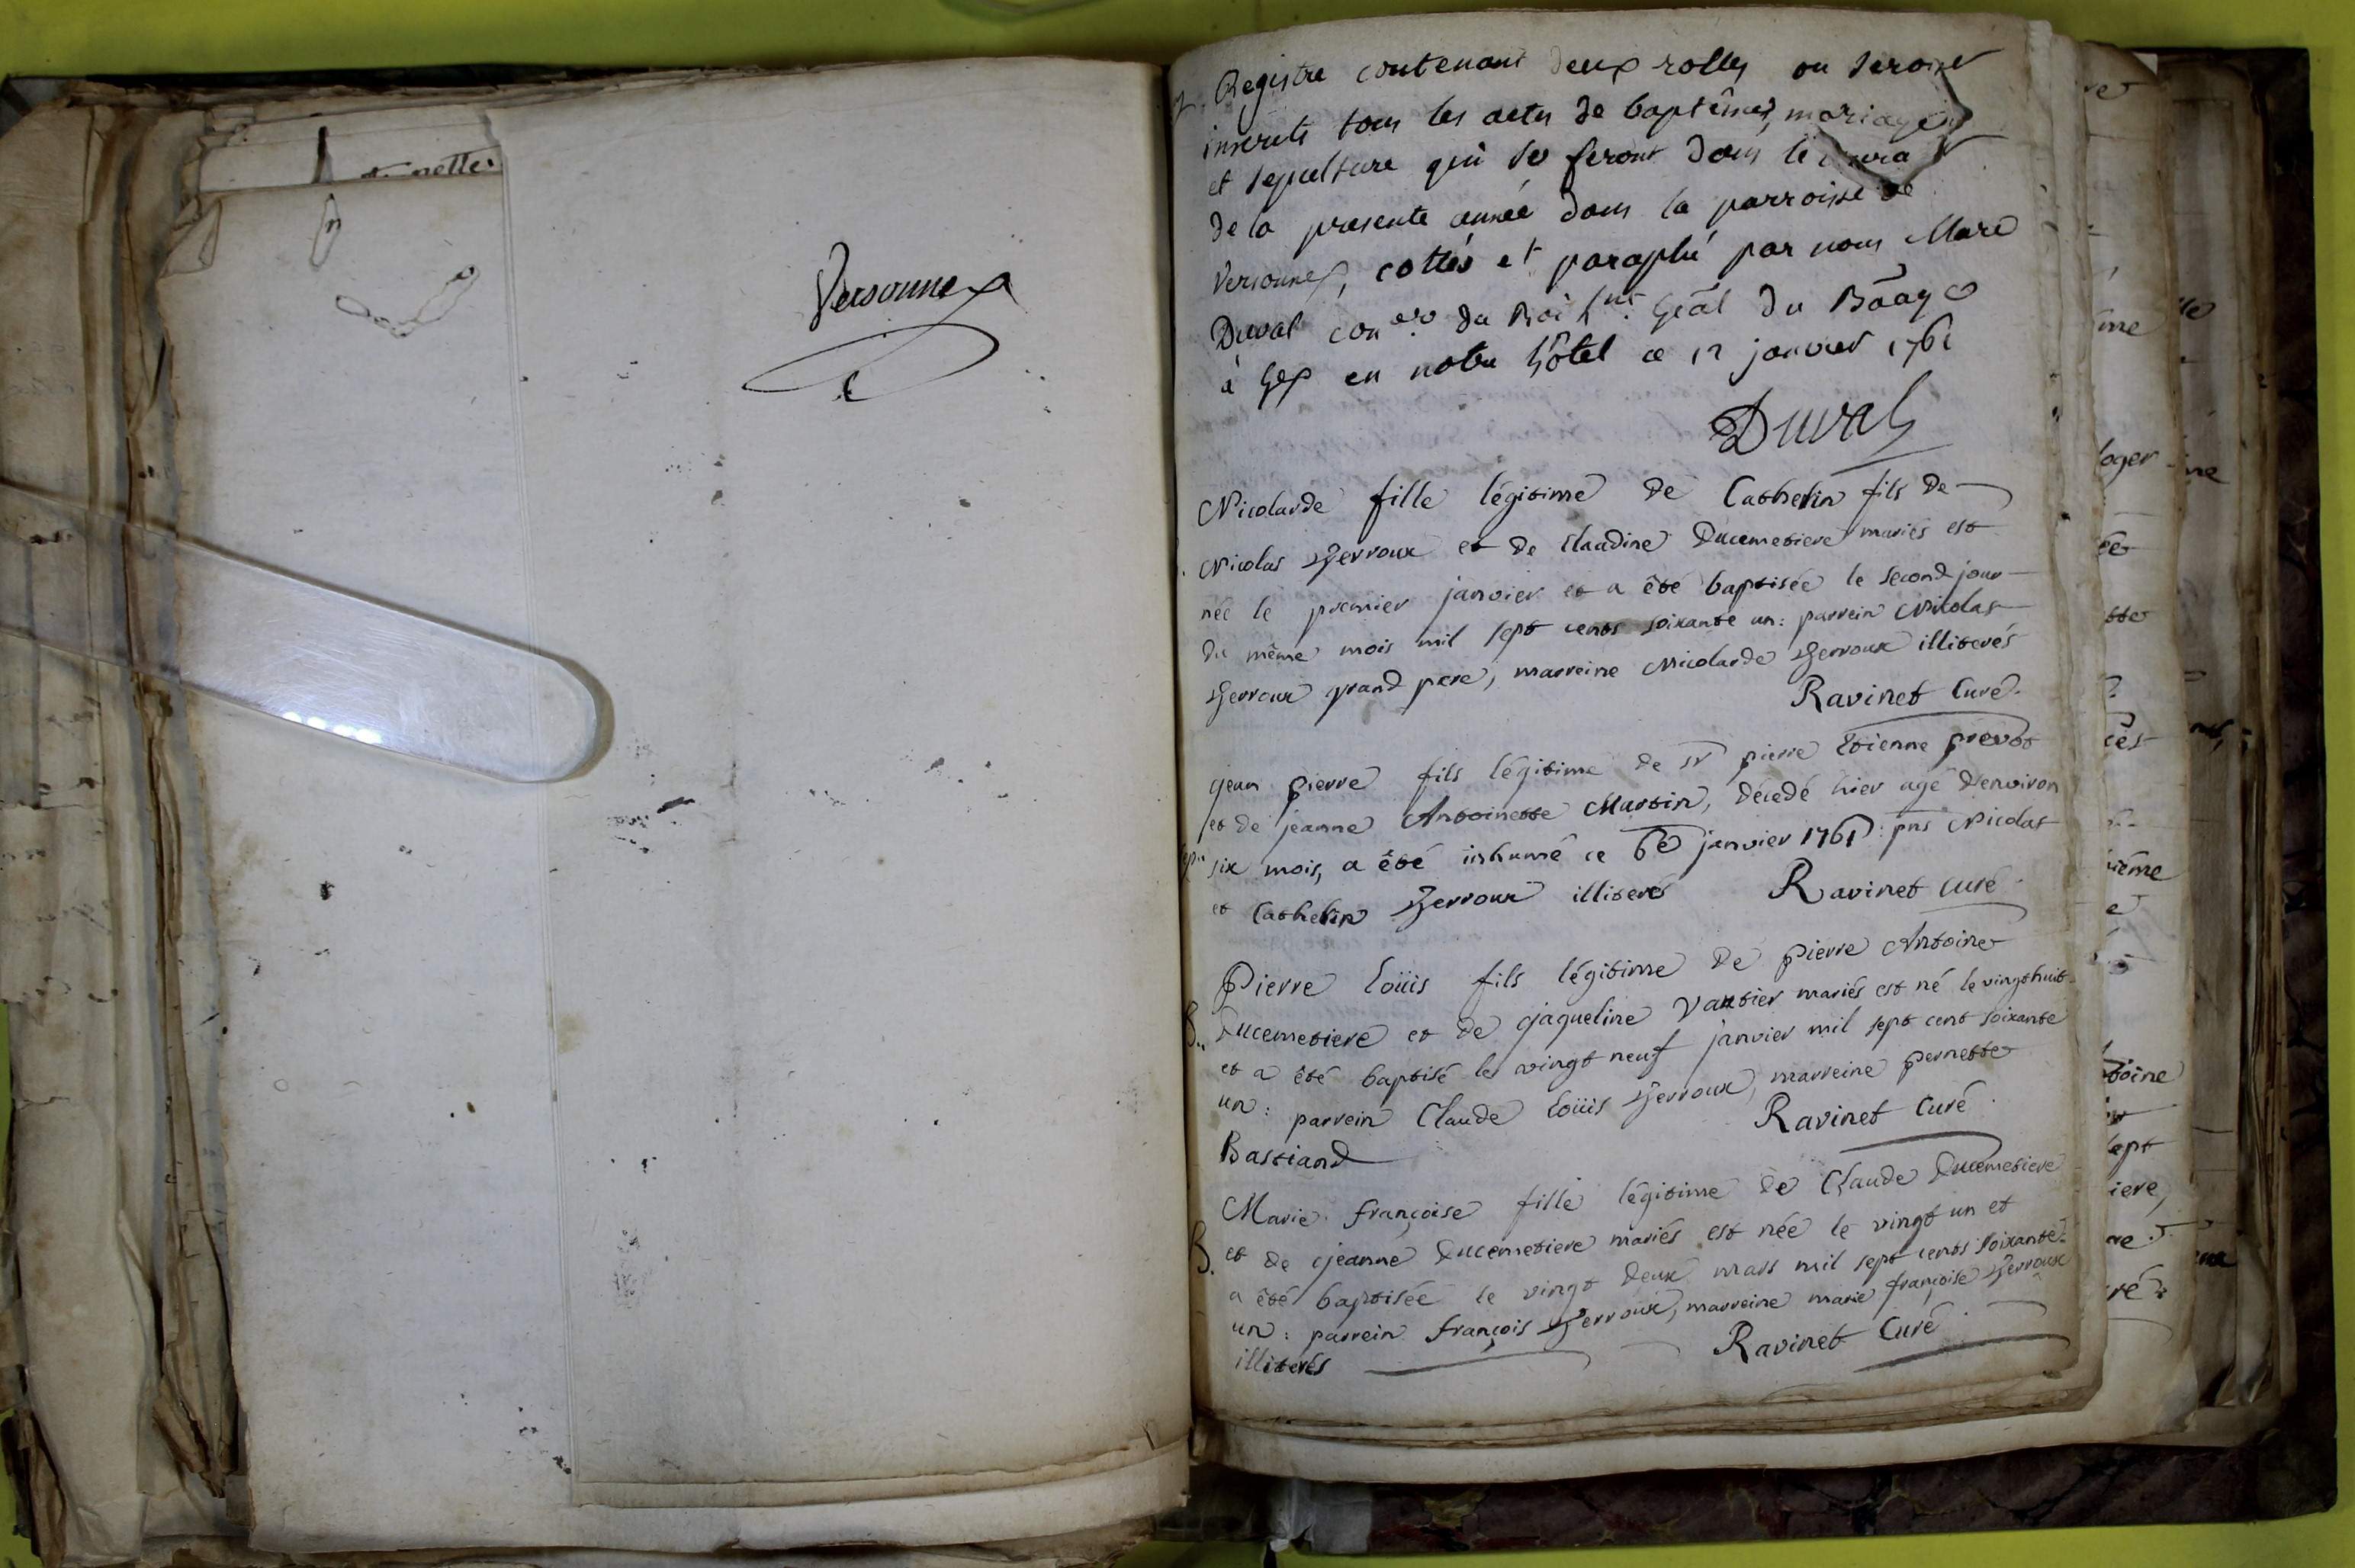 Versonnex
Registre contenant deux rolles ou seront
inscrits tous les actes de baptêmes, mariages
et sepulture qui se feront dans le
de la presente année dans la parroisse de
Versonnex, cottés et paraphé par nous Marc
Duval con.er du Roi L.nt Gẽal du Baãge
à Gex en notre hôtel ce 12 janvier 1761
Duval
Nicolarde fille légitime de Cathelin fils de
Nicolas Gerroux et de Claudine Ducemetiere mariés est
née le premier janvier et a été baptisée le second jour
du même mois mil sept cents soixante un: parrein Nicolas
Gerroux grand pere, marreine Nicolarde Gerroux illiterés
Ravinet Curé.
jean pierre fils légitime de sr pierre Etienne prevot
et de jeanne Antoinette Martin, décedé hier agé d'environ
six mois, a été inhumé ce 6e janvier 1761: pns Nicolas
et Cathelin Gerroux illiterés Ravinet curé.
Pierre Loüis fils légitime de pierre Antoine
B. Ducemetiere et de jaqueline Vautier mariés est né le vingthuit
et a été baptisé le vingt neuf janvier mil sept cent soixante
un: parrein Claude Loüis Gerroux, marreine pernette
Bastiand Ravinet Curé.
Marie françoise fille légitime de Claude Ducemetiere
B. et de jeanne Ducemetiere mariés est née le vingt un et
a été baptisée le vingt deux mars mil sept cents soixante
un: parrein françois Gerroux, marreine marie françoise Gerroux
illiterés Ravinet Curé.